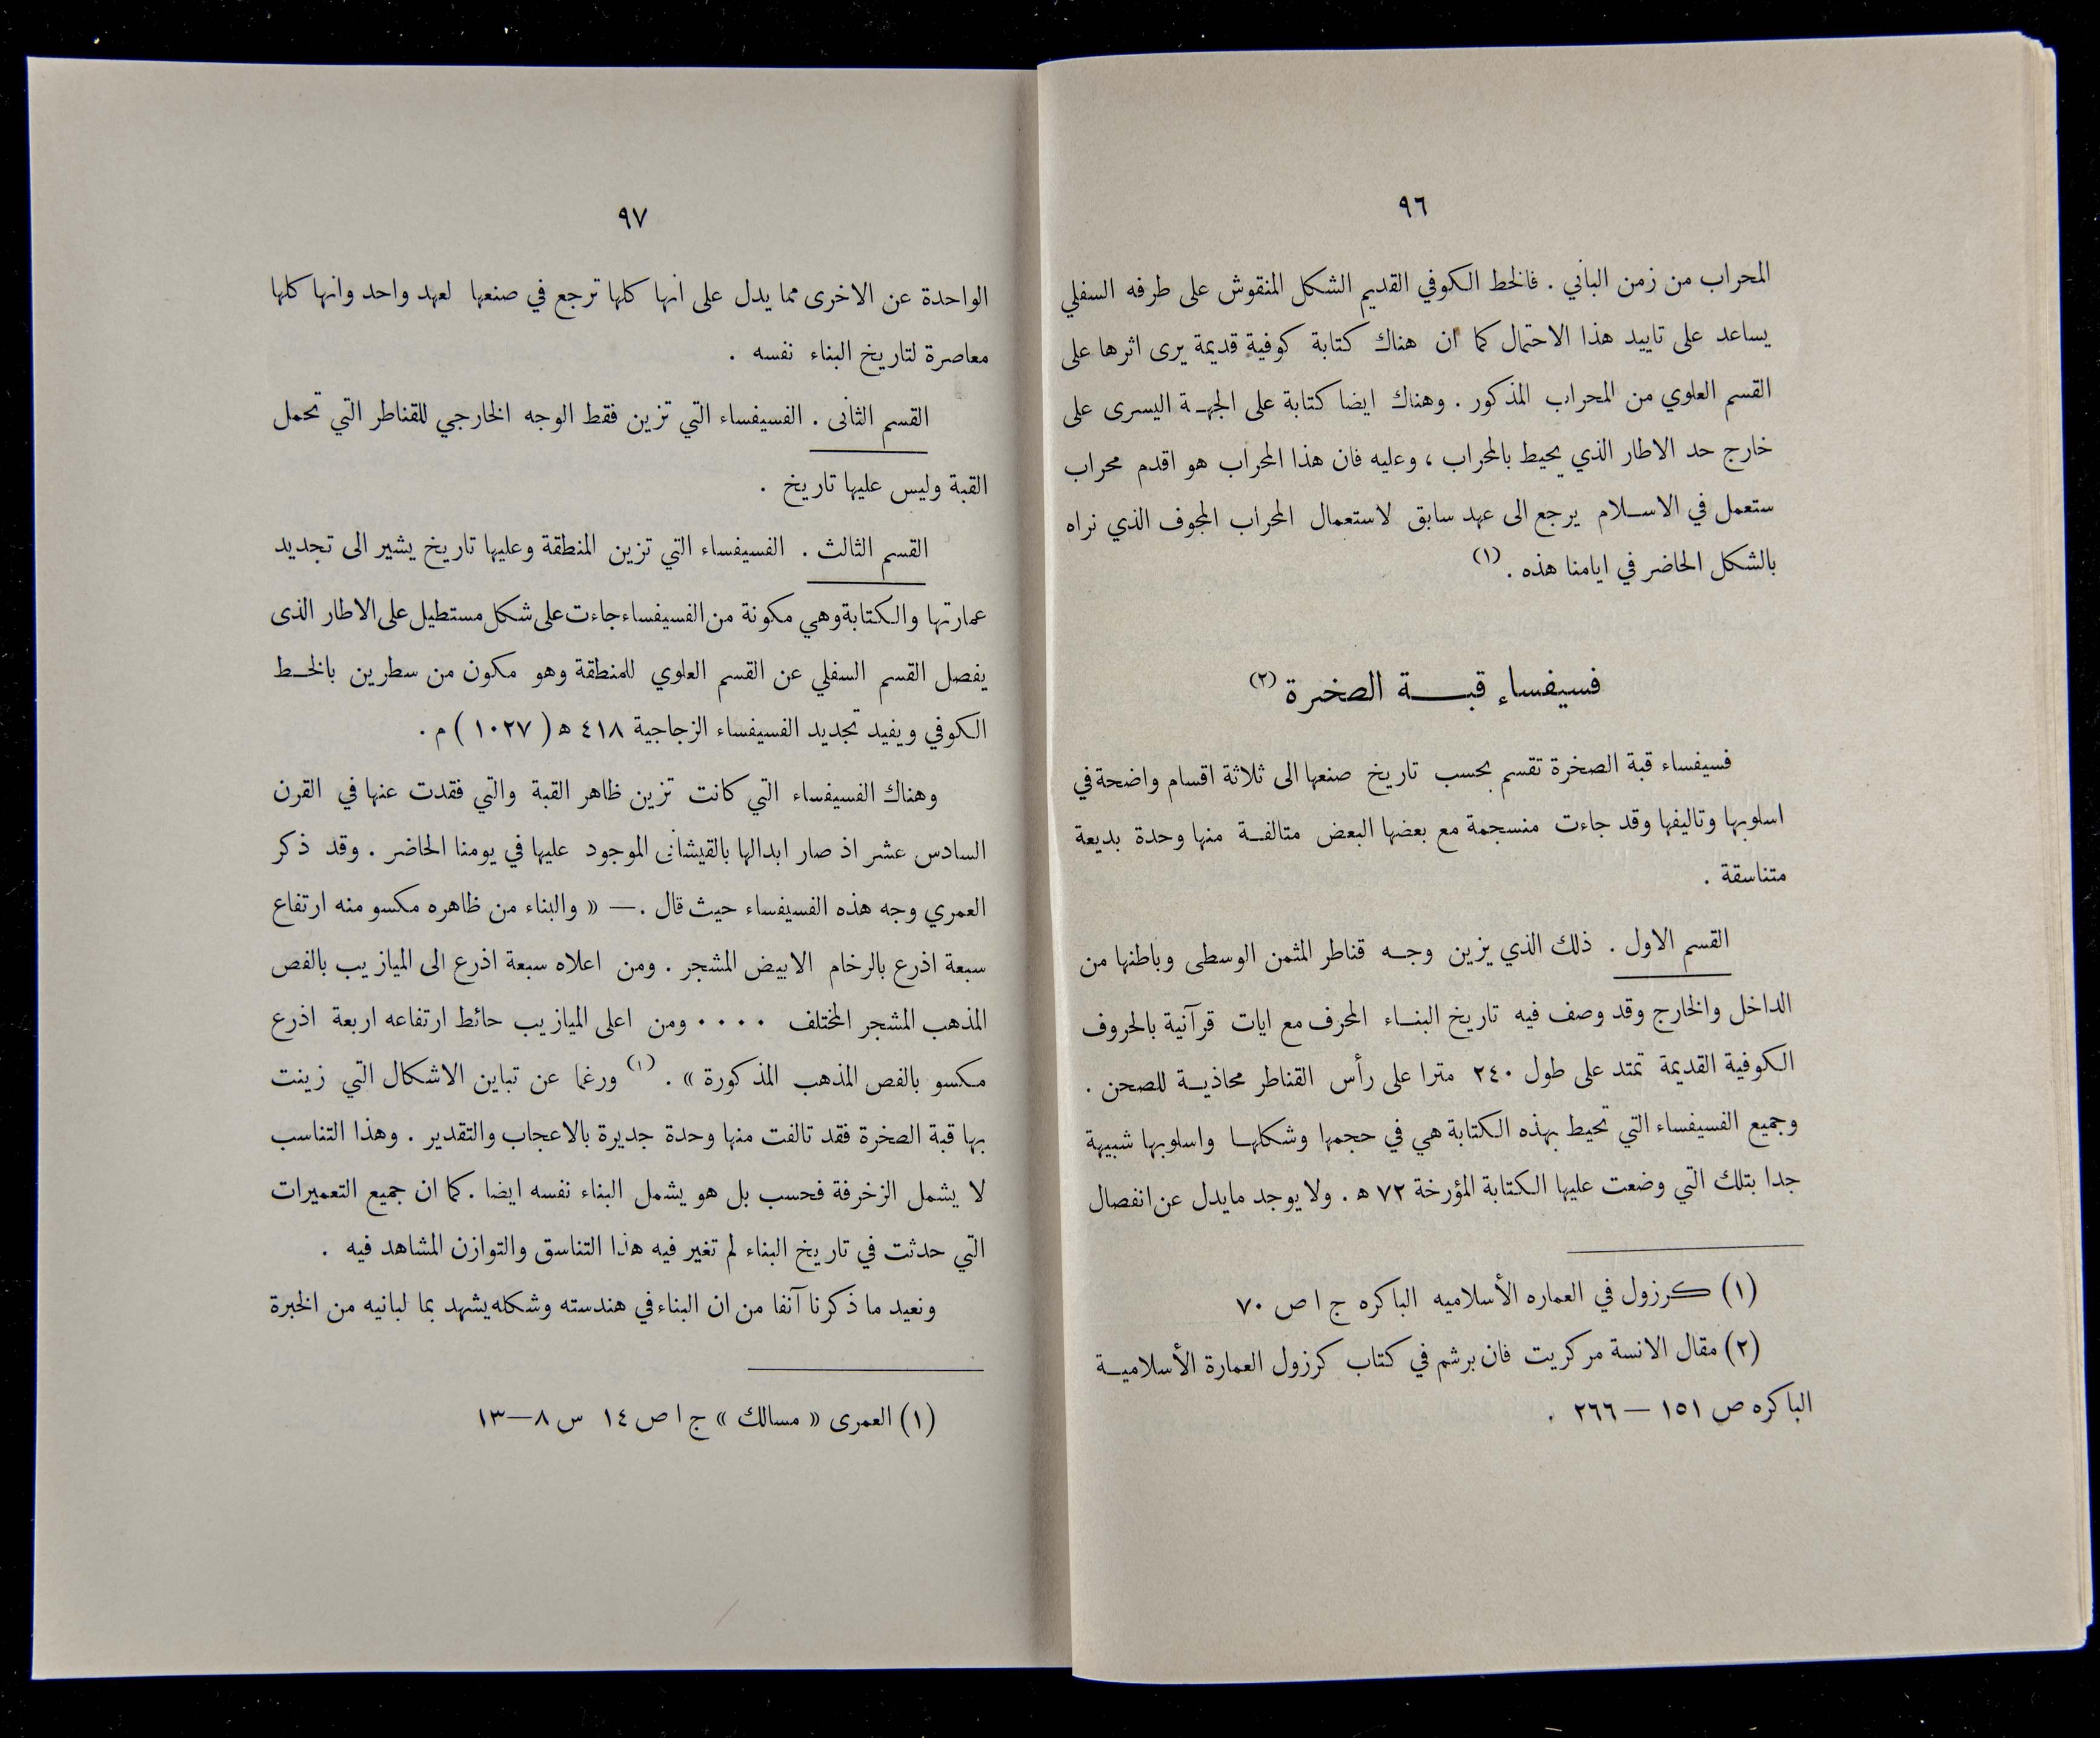 ٩٦
المحراب من زمن الباني . فالخط الكوفي القديم الشكل المنقوش على طرفه السفلي
يساعد على تاييد هذا الاحتمال كما ان هناك كتابة كوفية قديمة يرى اثرها على
القسم العلوي من المحراب المذكور . وهناك ايضا كتابة على الجهـة اليسرى على
خارج حد الاطار الذي يحيط بالمحراب ، وعليه فان هذا المحراب هو اقدم محراب
ستعمل في الاسـلام يرجع الى عهد سابق لاستعمال المحراب المجوف الذي نراه
بالشكل الحاضر في ايامنا هذه . (١)
فسيفساء قبـــة الصخرة (٢)
فسيفساء قبة الصخرة تقسم بحسب تاريخ صنعها الى ثلاثة اقسام واضحة في
اسلوبها وتاليفها وقد جاءت منسجمة مع بعضها البعض متالفـة منها وحدة بديعة
متناسقة .
القسم الاول . ذلك الذي يزين وجـه قناطر المثمن الوسطى وباطنها من
الداخل والخارج وقد وصف فيه تاريخ البنـاء المحرف مع ايات قرآنية بالحروف
الكوفية القديمة تمتد على طول ٢٤٠ مترا على رأس القناطر محاذيـة للصحن .
وجميع الفسيفساء التي تحيط بهذه الكتابة هي في حجمها وشكلهـا واسلوبها شبيهة
جدا بتلك التي وضعت عليها الكتابة المؤرخة ٧٢ ه . ولا يوجد مايدل عن انفصال
(١) كرزول في العماره الأسلاميه الباكره ج ١ ص ٧٠
(٢) مقال الانسة مركريت فان برشم في كتاب كرزول العمارة الأسلاميـة
الباكره ص ١٥١ — ٢٦٦ .
٩٧
الواحدة عن الاخرى مما يدل على انها كلها ترجع في صنعها لعهد واحد وانها كلها
معاصرة لتاريخ البناء نفسه .
القسم الثانى . الفسيفساء التي تزين فقط الوجه الخارجي للقناطر التي تحمل
القبة وليس عليها تاريخ .
القسم الثالث . الفسيفساء التي تزين المنطقة وعليها تاريخ يشير الى تجديد
عمارتها والكتابة وهي مكونة من الفسيفساء جاءت على شكل مستطيل على الاطار الذى
يفصل القسم السفلي عن القسم العلوي للمنطقة وهو مكون من سطرين بالخـط
الكوفي ويفيد تجديد الفسيفساء الزجاجية ٤١٨ ه ( ١٠٢٧ ) م .
وهناك الفسيفساء التي كانت تزين ظاهر القبة والتي فقدت عنها في القرن
السادس عشر اذ صار ابدالها بالقيشانى الموجود عليها في يومنا الحاضر . وقد ذكر
العمري وجه هذه الفسيفساء حيث قال .— « والبناء من ظاهره مكسو منه ارتفاع
سبعة اذرع بالرخام الابيض المشجر . ومن اعلاه سبعة اذرع الى الميازيب بالفص
المذهب المشجر المختلف .... ومن اعلى الميازيب حائط ارتفاعه اربعة اذرع
مكسو بالفص المذهب المذكورة » . (١) ورغما عن تباين الاشكال التي زينت
بها قبة الصخرة فقد تالفت منها وحدة جديرة بالاعجاب والتقدير . وهذا التناسب
لا يشمل الزخرفة فحسب بل هو يشمل البناء نفسه ايضا . كما ان جميع التعميرات
التي حدثت في تاريخ البناء لم تغير فيه هذا التناسق والتوازن المشاهد فيه .
ونعيد ما ذكرنا آنفا من ان البناء في هندسته وشكله يشهد بما لبانيه من الخبرة
(١) العمرى « مسالك » ج ١ ص ١٤ س ٨—١٣